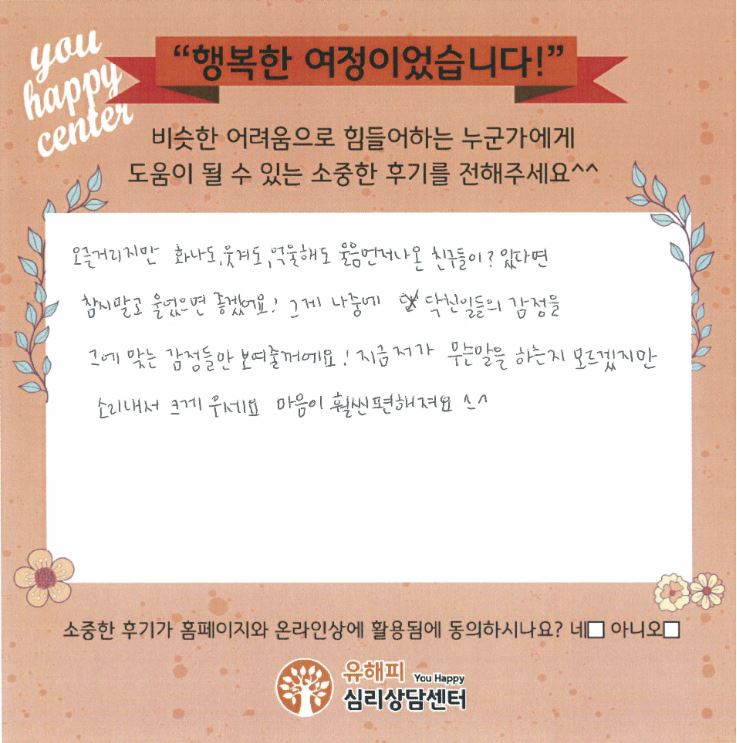 you
happy
center
“행복한 여정이었습니다!”
비슷한 어려움으로 힘들어하는 누군가에게
도움이 될 수 있는 소중한 후기를 전해주세요^^
오글거리지만 화나도,웃겨도,억울해도 울음먼저나온 친구들이? 있다면
참지말고 울었으면 좋겠어요! 그게 나중에 닥친일들의 감정을
그에 맞는 감정들만 보여줄꺼에요! 지금 저가 무슨말을 하는지 모르겠지만
소리내서 크게 우세요 마음이 훨씬편해져요 ^^
소중한 후기가 홈페이지와 온라인상에 활용됨에 동의하시나요? 네□ 아니오□
유해피 You Happy
심리상담센터